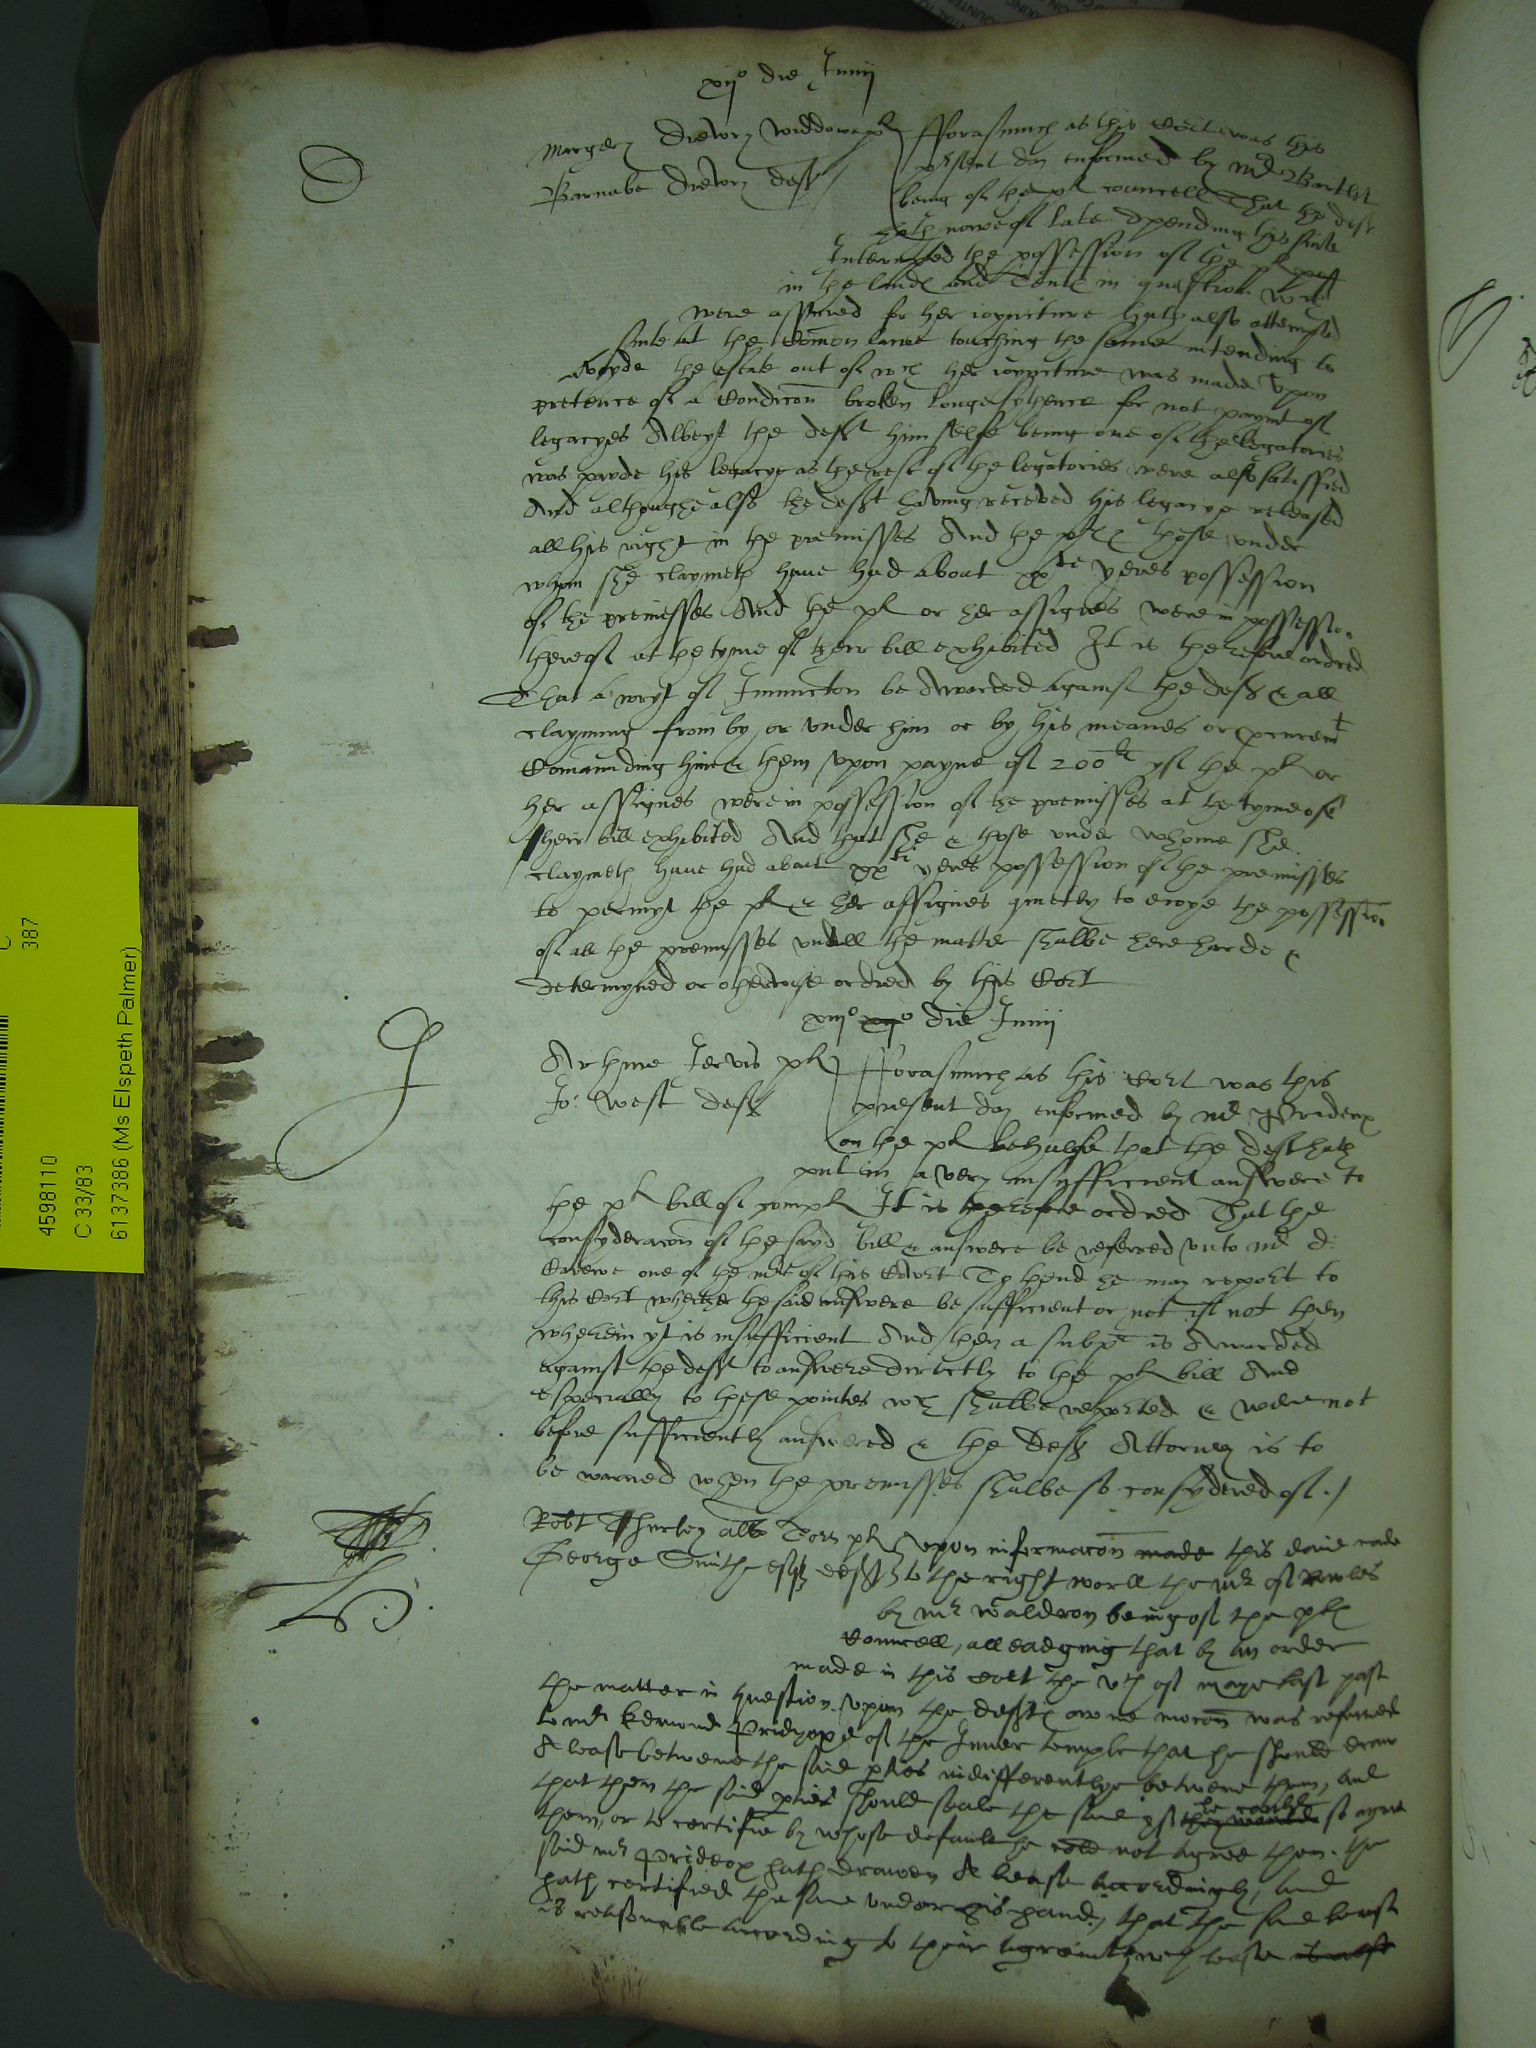 xijo die Junij
D
Margery Drewry widdowe pl
Barnabe Drewry deft
fforasmuch as this Cort was this
present day enformed by Mr Bartlet
being of the pl councell That the deft
hath nowe of late depending this sute
Interupted the possession of the pl
in the lands and Tents in question wch
were assured for her ioyncture hath also attempted
sute at the Comon lawe touching the same intending to
Avoyde the estate out of wch her ioyncture was made vpon
pretence of a Condicon broken longe sythence for not paymt of
legacyes Albeyt the deft himselfe being one of the legatories
was payde his legacye as the rest of the legatories were also satisfied
And althoughe also the deft having receved his legacye released
all his right in the premisses And the pl & those vnder
whom she claymeth haue had about xxtie yeres possession
of the premisses And the pl or her assignes were in possession
thereof at the tyme of their bill exhibited It is therefore ordred
That a wryt of Iniunction be Awarded against the deft & all
clayming from by or vnder him or by his meanes or procuremt
Comaunding him & them vpon payne of 200li yf the pl or
her assignes were in possession of the premisses at the tyme of
their bill exhibited And that she & those vnder whome she
claymeth haue had about xxti yeres possession of the premisses
to permyt the pl & her assignes quietly to enioye the possession
of all the premisses vntill the matter shalbe here harde &
determyned or otherwise ordred by this Cort
xiijo xijo die Junij
J
Arthure Jervis pl
Jo: West deft
fforasmuch as this Cort was this
present day enformed by Mr Prideux
on the pl behalfe that the deft hath
put in a very insufficient answere to
the pl bill of compl It is therefore ordred That the
consyderacon of the sayd bill & answere be referred vnto Mr D:
Carewe one of the mrs of this Court To thend he may report to
this Cort whether the said answere be sufficient or not if not then
wherein yt is insufficient And then a subp is Awarded
against the deft to answere directly to the pl bill And
especially to those pointes wch shalbe reported & were not
before sufficiently answered & the deft Attorney is to
be warned when the premisses shalbe so consydered of./
Robt Thurley als Torr pl
George Smithe esqr deft
vpon informacon made this daie made
to the right worll the Mr of Rowles
by Mr Waldron being of the pl
Councell, alleadging that by an order
made in this Cort the vth of maye last past
the matter in question vpon the defts owne mocon was referred
to Mr Edmond Pridyox of the Inner Temple that he should drawe
A lease betwene the said pties indifferentlye betwene them, and
that then the said pties should seale the same yf they would he coulde so agree
them, or to certifie by whose default he cold not agree them. the
said Mr Prideox hath drawen A lease accordingly, and
hath certified the same vnder his hand, that the said lease
is reasonable according to their agreemt, wch lease is also
4598110
C 33/83
6137386 (Ms Elspeth Palmer)
C
387